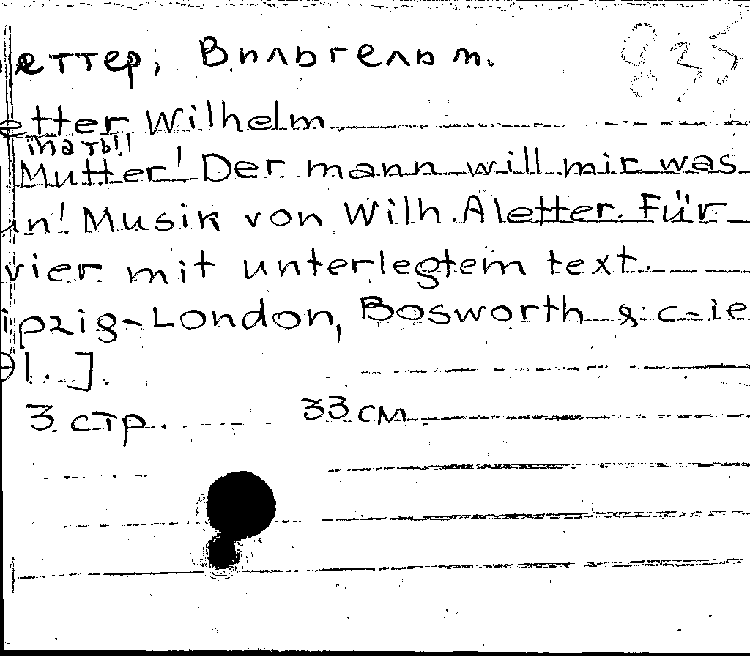 еттер, Вильгельм. 835
etter Wilhelm
мать!!
Mutter! Der mann will mir was
un! Musik von Wilh. Aletter. Für
vier mit unterlegtem text.
ipzig-London, Bosworth & c-ie
[. .].
3 стр. 33 см